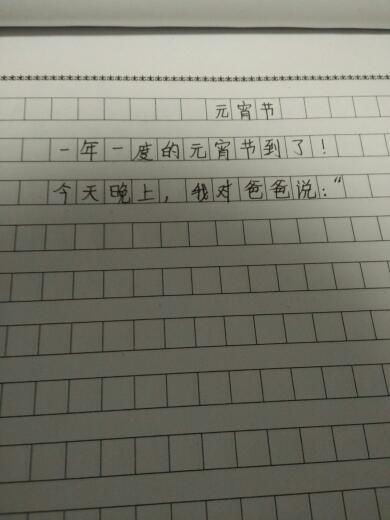 元宵节
一年一度的元宵节到了!
今天晚上,我对爸爸说:“